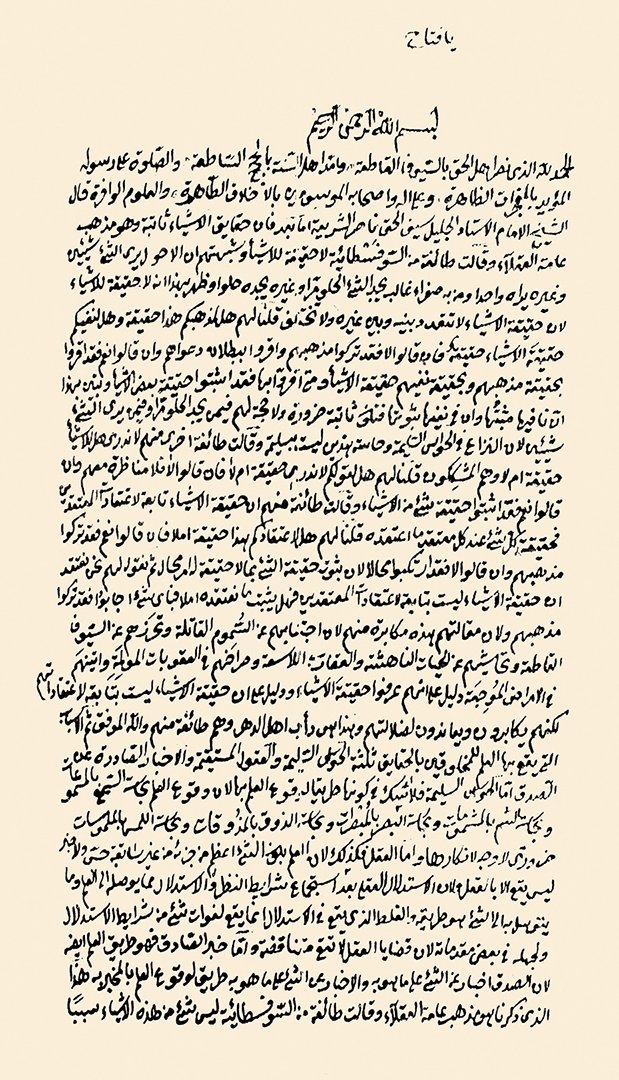 يا فتاح
بسم الله الرحمن الرحيم
الحمد لله الذى نصر اهل الحق بالسيوف القاطعة وامد اهل السنة بالحجج الساطعة والصلوة على رسوله
المؤيد بالمعجزات الظاهرة وعلى اله واصحابه الموسومين بالاخلاق الطاهرة والعلوم الوافرة قال
الشيخ الامام الاستاد الجليل سيف الحق ناصر الشريعة اما بعد فان حقايق الاشياء ثابتة وهو مذهب
عامة العقلاء وقالت طائفة من السوفسطائية لا حقيقة للاشيأ وشبهتهم ان الاحول يرى الشئ شيئين
وغيره يراه واحدا ومن به صفراء غالب يجد الشئ الحلو مرا وغيره يجده حلوا وظهر بهذا انه لا حقيقة للاشياء
لان حقيقة الاشياء لا تتعدد بينه وبين غيره ولا تختلف قلنا لهم هل لمذهبكم هذا حقيقة وهل لنفيكم
حقيقة الاشياء حقيقة فان قالوا لا فقد تركوا مذهبهم واقروا ببطلان دعواهم وان قالوا نعم فقد اقروا
بحقيقة مذهبهم وبحقيقة نفيهم حقيقة الاشيأ ومتى اقروا بها فقد اثبتوا حقيقة بعض الاشيأ وتبين بهذا
ان نافيها مثبتها وان فى نفيها ثبوتها فتكون ثابتة ضرورة ولا حجة لهم فيمن يجد الحلو مرا وفيمن يرى الشئ
شيئين لان النزاع فى الحواس السليمة وحاسة هذين ليست بسليمة وقالت طائفة اخرى منهم لا ندرى هل للاشيأ
حقيقة ام لا وهم المشككون قلنا لهم هل لقولكم لا ندرى حقيقة ام لا فان قالوا لا فلا مناظرة معهم وان
قالوا نعم فقد اثبتوا حقيقة شئ من الاشياء وقالت طائفة منهم ان حقيقة الاشياء تابعة لاعتقاد المعتقدين
فحقيقة كل شئ عند كل معتقد ما اعتقده قلنا لهم هل لاعتقادكم بهذا حقيقة ام لا فان قالوا نعم فقد تركوا
مذهبهم وان قالوا لا فقد ارتكبوا محالا لان ثبوت حقيقة الشئ بما لا حقيقة له امر محال ثم نقول لهم نحن نعتقد
ان حقيقة الاشياء ليست بتابعة لاعتقاد المعتقدين فهل يثبت ما نعتقده ام لا فباى شئ اجابوا فقد تركوا
مذهبهم ولان مقالتهم هذه مكابرة منهم لان اجتنابهم عن السموم القاتلة وتحرزهم عن السيوف
القاطعة وتحاشيهم عن الحيات الناهشة والعقارب اللاسعة وصراخهم فى العقوبات المولمة وانينهم
فى الامراض الموجعة دليل على انهم عرفوا حقيقة الاشياء ودليل على ان حقيقة الاشياء ليست بتابعة لاعتقاداتهم
لكنهم يكابرون ويعاندون لضلالتهم وهذا من دأب اهل الدهر وهم طائفة منهم والله الموفق ثم الاسباب
التى يقع بها العلم للمخلوقين بالحقايق ثلثة الحواس السليمة والعقول المستقيمة والاخبار الصادرة عن
الصدق اما الحواس السليمة فلا شك فى كونها طريقا لوقوع العلم بها لان وقوع العلم بحاسة السمع بالمسموعات
وبحاسة الشم بالمشمومات وبحاسة البصر بالمبصرات وبحاسة الذوق بالمذوقات وبحاسة اللمس بالملموسات
ضرورى لا وجه لانكارها واما العقل فكذلك لان العلم بكون الشئ اعظم من جزئه من غير سابقة حس ولا خبر
ليس يقع الا بالعقل ولان الاستدلال العقلى بعد استجماع شرايط النظر والاستدلال مما يوصل الى العلم وما
يتوصل به الى الشئ هو طريقه والغلط الذى يقع فى الاستدلال انما يقع لفوات شئ من شرايط الاستدلال
ولجهله فى بعض مقدماته لان قضايا العقل لا تقع متناقضة واما خبر الصادق فهو طريق العلم ايضا
لان الصدق اخبار عن الشئ على ما هو به والاخبار عن الشئ على ما هو به طريق لوقوع العلم بالمخبر به هذا
الذى ذكرنا هو مذهب عامة العقلاء وقالت طائفة من السوفسطائية ليس شئ من هذه الاشياء سببا